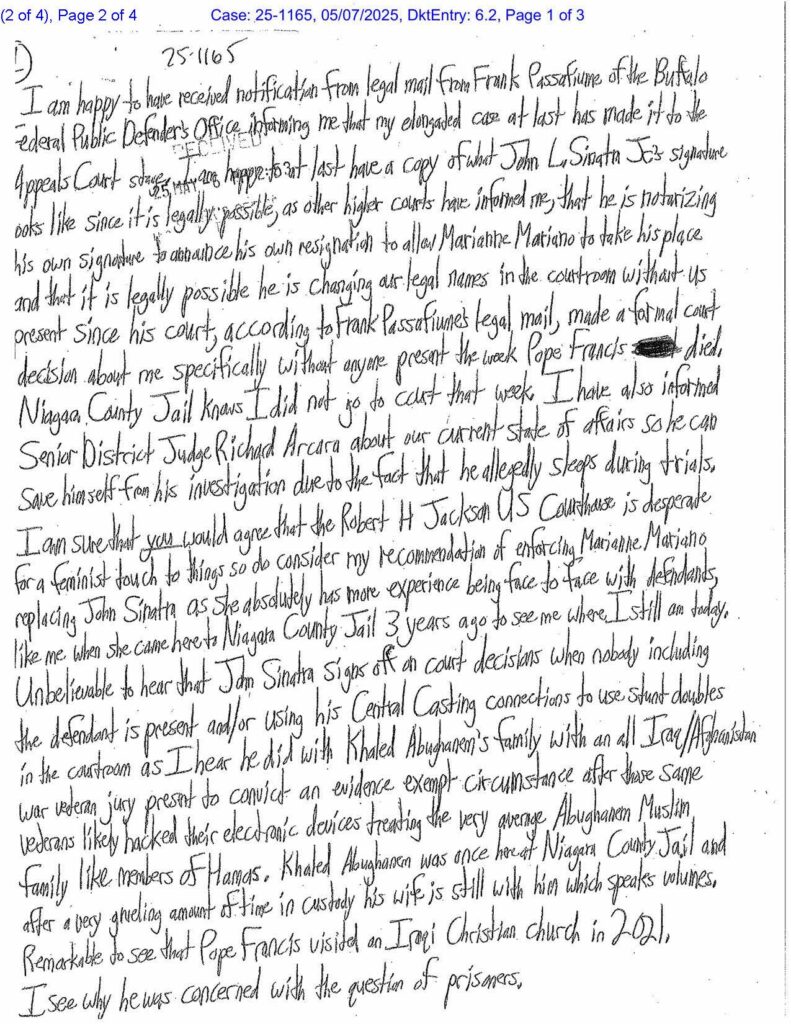 (2 of 4), Page 2 of 4
Case: 25-1165, 05/07/2025, DktEntry: 6.2, Page 1 of 3
1)
25-1165
I am happy to have received notification from legal mail from Frank Passafiume of the Buffalo
Federal Public Defender's Office informing me that my elongated case at last has made it to the
RECEIVED
Appeals Court stage. I am happy to at last have a copy of what John L. Sinatra Jr.'s signature
25 MAY
ooks like since it is legally possible, as other higher courts have informed me, that he is notarizing
his own signature to announce his own resignation to allow Marianne Mariano to take his place
and that it is legally possible he is changing our legal names in the courtroom without us
present since his court, according to Frank Passafiume's legal mail, made a formal court
decision about me specifically without anyone present the week Pope Francis died.
Niagara County Jail knows I did not go to court that week. I have also informed
Senior District Judge Richard Arcara about our current state of affairs so he can
save himself from his investigation due to the fact that he allegedly sleeps during trials.
I am sure that you would agree that the Robert H Jackson US Courthouse is desperate
for a feminist touch to things so do consider my recommendation of enforcing Marianne Mariano
replacing John Sinatra as she absolutely has more experience being face to face with defendants,
like me when she came here to Niagara County Jail 3 years ago to see me where I still am today.
Unbelievable to hear that John Sinatra signs off on court decisions when nobody including
the defendant is present and/or using his Central Casting connections to use stunt doubles
in the courtroom as I hear he did with Khaled Abughanem's family with an all Iraq/Afghanistan
war veteran jury present to convict an evidence exempt circumstance after those same
veterans likely hacked their electronic devices treating the very average Abughanem Muslim
family like members of Hamas. Khaled Abughanem was once here at Niagara County Jail and
after a very grueling amount of time in custody his wife is still with him which speaks volumes.
Remarkable to see that Pope Francis visited an Iraqi Christian church in 2021.
I see why he was concerned with the question of prisoners.